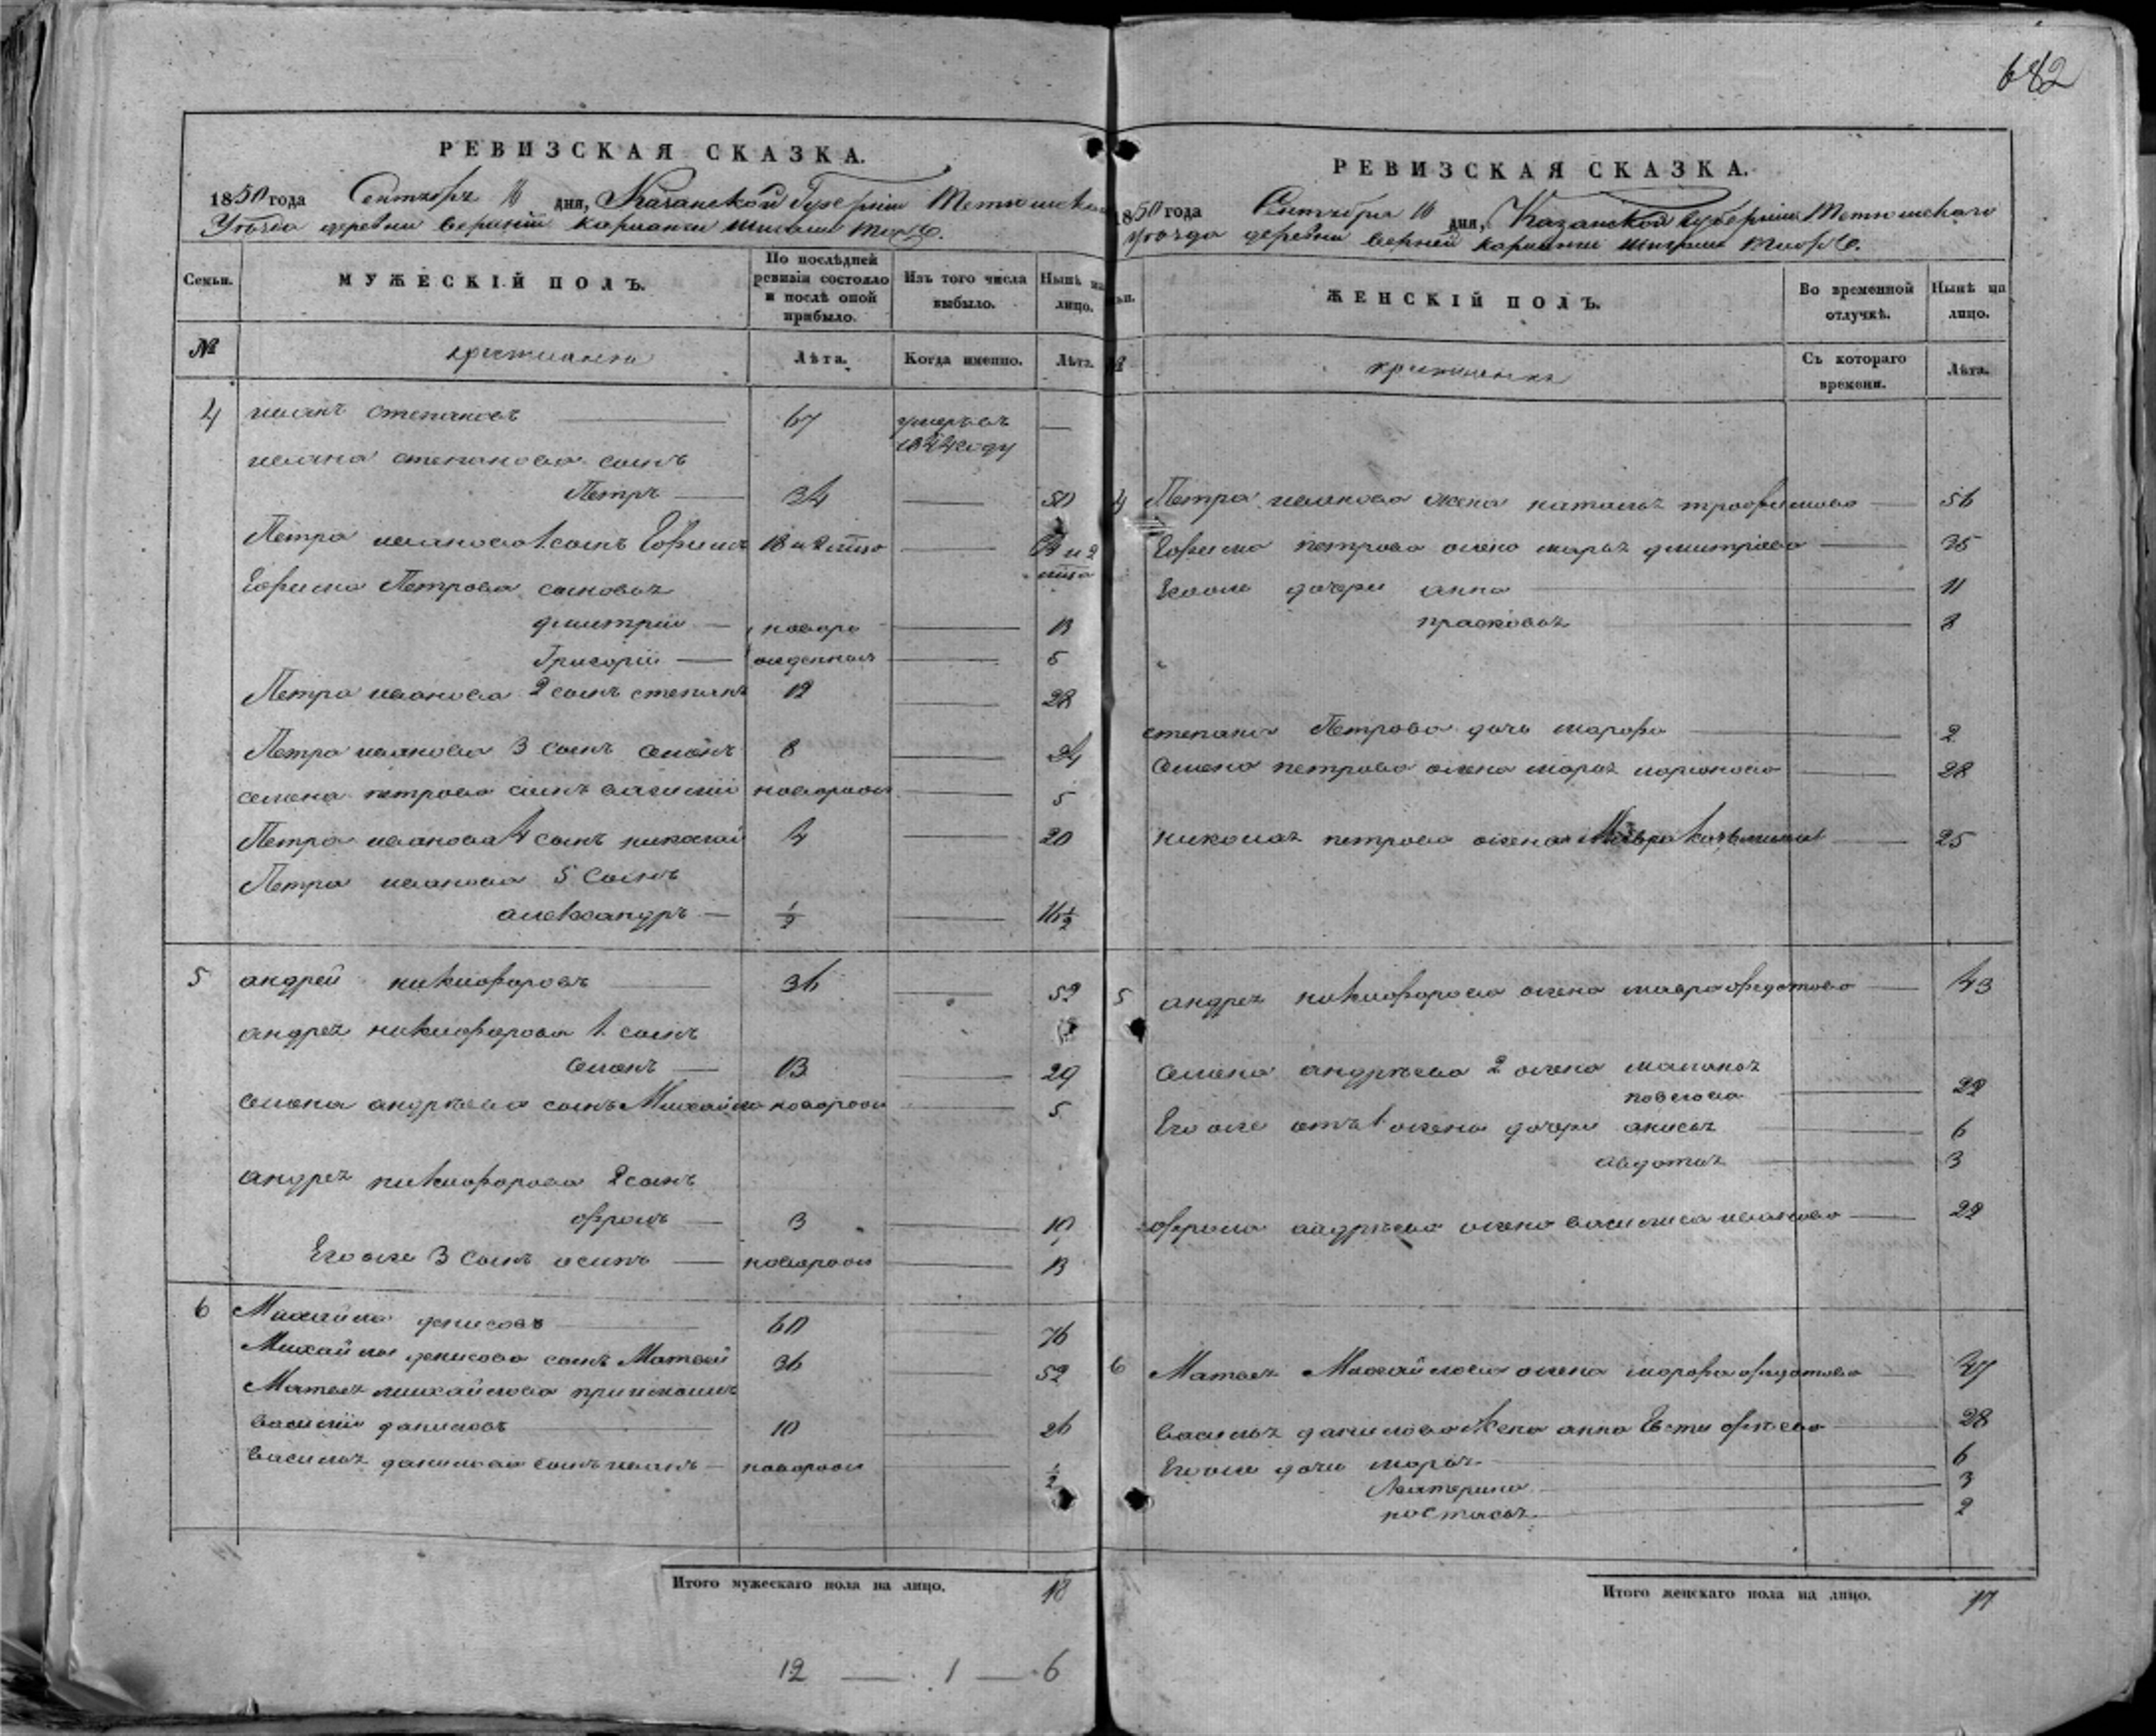 682
РЕВИЗСКАЯ СКАЗКА.
1850 года Сентября 16 дня, Казанской Губернiи Тетюшскаго
Уѣзда деревни верхнiй
Семьи.
МУЖЕСКІЙ ПОЛЪ.
По послѣдней ревизіи состояло и послѣ оной прибыло.
Изъ того числа выбыло.
Нынѣ на лицо.
№
Лѣта.
Когда именно.
Лѣта.
4 иванъ степановъ 67 умеръ въ 1844 году
ивана степанова сынъ
Петръ 34 50
Петра иванова 1. сынъ Ефимъ
Ефима Петрова сыновья
дмитрiй новоро 13
Григорiй жденныя 5
Петра иванова 2 сынъ степанъ 12 28
Петра иванова 3 сынъ семенъ 8 24
семена петрова сынъ василiй новорож 5
Петра иванова 4 сынъ николай 4 20
Петра иванова 5 сынъ
александръ ½ 16½
5 андрей никифоровъ 36 52
андрея никифорова 1. сынъ
семенъ 13 29
семена андрѣева сынъ Михайла новорож 5
андрея никифорова 2 сынъ
фролъ 3 19
Его же 3 сынъ осипъ новорож 13
6 Михайла денисовъ 60 76
Михайлы денисова сынъ Матвей 36 52
Матвея михайлова приемышъ
василiй даниловъ 10 26
василья данилова сынъ иванъ новорож ½
Итого мужескаго пола на лицо. 18
12 — 1 — 6
РЕВИЗСКАЯ СКАЗКА.
1850 года Сентября 16 дня, Казанской Губернiи Тетюшскаго
Уѣзда деревни верхней
ЖЕНСКІЙ ПОЛЪ.
Во временной отлучкѣ.
Нынѣ на лицо.
Съ котораго времени.
Лѣта.
4 Петра иванова жена наталья трофимова 56
Ефима петрова жена марья дмитрiева 35
Его же дочери анна 11
прасковья 8
степана Петрова дочь марфа 2
семена петрова жена марья 28
николая петрова жена 25
5 андрея никифорова жена мавра федотова 43
семена андрѣева 2 жена маланья
павлова 22
Его же отъ 1 жены дочери анисья 6
авдотья 3
фрола андрѣева жена василиса иванова 22
6 Матвея Михайлова жена марфа федотова 47
василья данилова жена анна Евстифѣева 28
Его же дочь марья 6
Катерина 3
настасья 2
Итого женскаго пола на лицо. 17